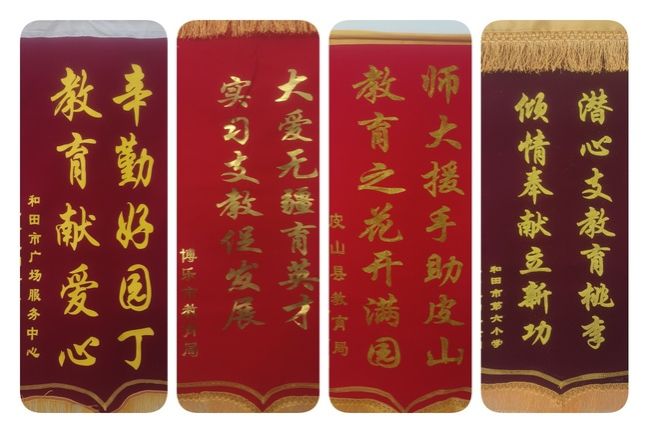 辛勤好园丁
教育献爱心
和田市广场服务中心
大爱无疆育英才
实习支教促发展
博乐市教育局
师大援手助皮山
教育之花开满园
皮山县教育局
潜心支教育桃李
倾情奉献立新功
和田市第六小学